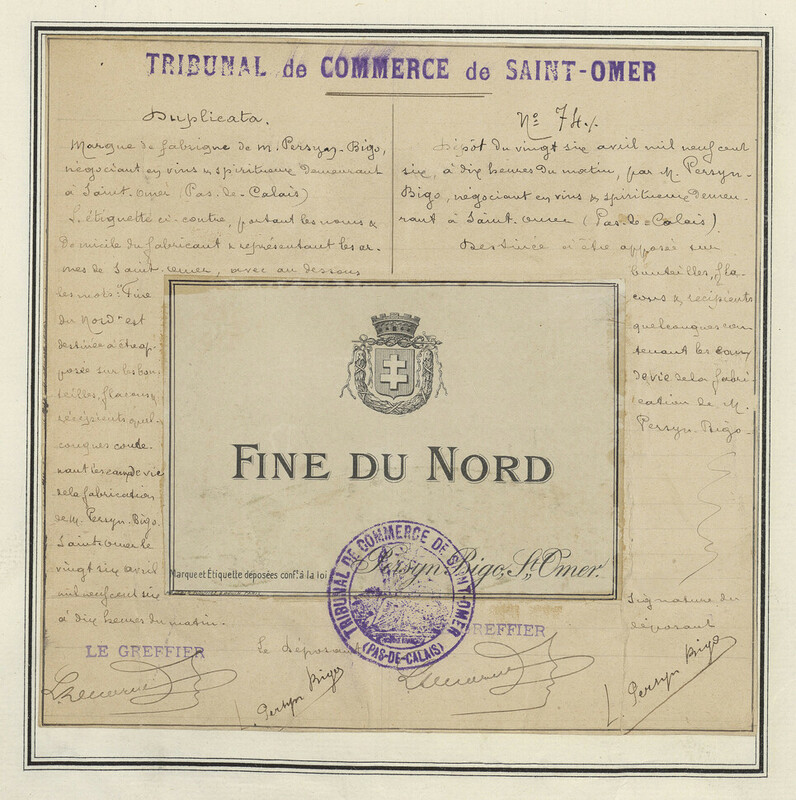 TRIBUNAL de COMMERCE de SAINT-OMER
Duplicata.
Marque de fabrique de M. Persyn-Bigo,
négociant en vins & spiritueux demeurant
à Saint-Omer (Pas-de-Calais)
L'étiquette ci-contre, portant les noms &
Domicile du fabricant & représentant les ar-
mes de Saint-Omer, avec au dessous
les mots "Fine
du Nord" est
destinée à être ap-
posée sur les bou-
teilles, flacons &
récipients quel-
conques conte-
nant les eaux de vie
de la fabrication
de M. Persyn-Bigo.
Saint-Omer le
vingt six avril
mil neuf cent six
à dix heures du matin.
LE GREFFIER
Le Déposant
L. Persyn Bigo
No 74
Dépôt du vingt six avril mil neuf cent
six, à dix heures du matin, par M. Persyn-
Bigo, négociant en vins & spiritueux demeu-
rant à Saint-Omer (Pas-de-Calais).
Destinée à être apposée sur
bouteilles, fla-
cons & récipients
quelconques con-
tenant les eaux
de vie de la fabri-
cation de M.
Persyn-Bigo
GREFFIER
Signature du
déposant
L. Persyn Bigo
FINE DU NORD
Marque et Étiquette déposées conft. à la loi
Persyn-Bigo, St Omer.
TRIBUNAL DE COMMERCE DE SAINT-OMER
(PAS-DE-CALAIS)